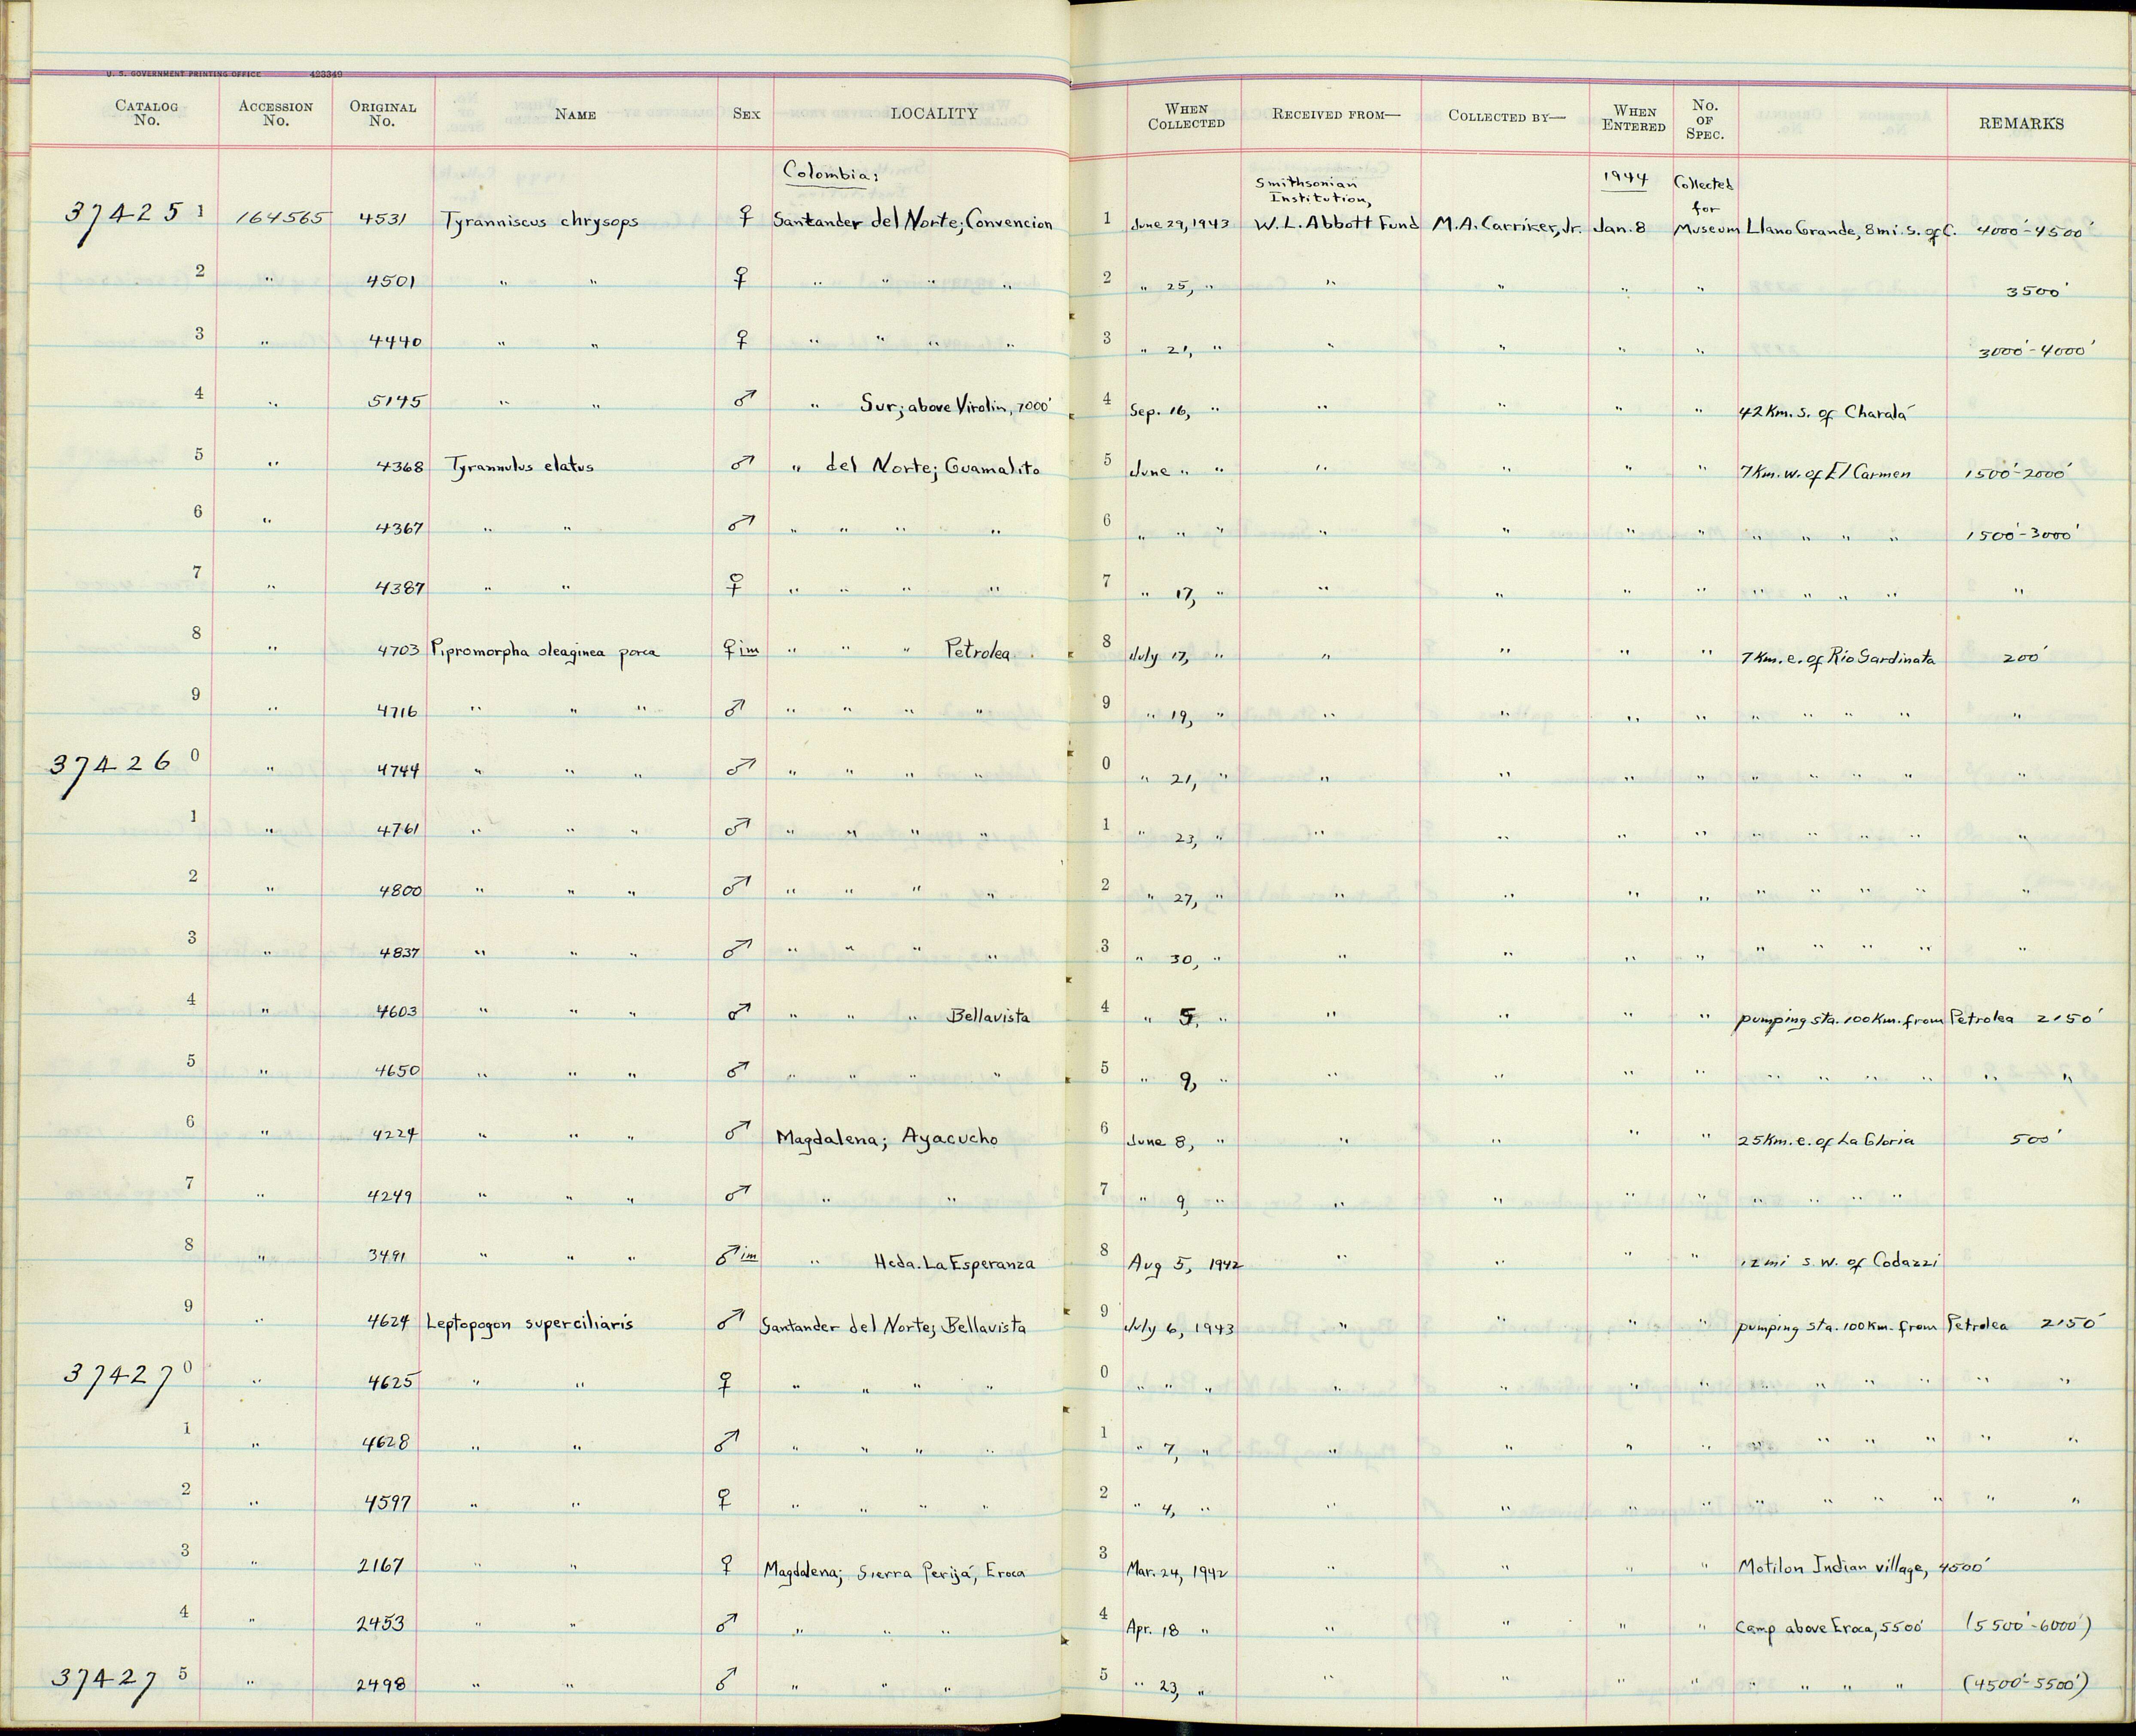 U. S. GOVERNMENT PRINTING OFFICE 423349
CATALOG No. ACCESSION No. ORIGINAL No. NAME SEX LOCALITY WHEN COLLECTED RECEIVED FROM— COLLECTED BY— WHEN ENTERED No. OF SPEC. REMARKS
Colombia: Smithsonian Institution, 1944 Collected for
374251 164565 4531 Tyranniscus chrysops ♀ Santander del Norte; Convencion 1 June 29, 1943 W. L. Abbott Fund M. A. Carriker, Jr. Jan. 8 Museum Llano Grande, 8 mi. s. of C. 4000'-4500'
2 " 4501 " " ♀ " " " " 2 " 25, " " " " " 3500'
3 " 4440 " " ♀ " " " " 3 " 21, " " " " " 3000'-4000'
4 " 5145 " " ♂ " Sur; above Virolin, 7000' 4 Sep. 16, " " " " " 42 Km. s. of Charalá
5 " 4368 Tyrannulus elatus ♂ " del Norte; Guamalito 5 June " " " " " " 7 Km. w. of El Carmen 1500'-2000'
6 " 4367 " " ♂ " " " " 6 " " " " " " " " " " " 1500'-3000'
7 " 4387 " " ♀ " " " " 7 " 17, " " " " " " " " " "
8 " 4703 Pipromorpha oleaginea porca ♀ im " " " Petrolea 8 July 17, " " " " " 7 Km. e. of Rio Sardinata 200'
9 " 4716 " " " ♂ " " " " 9 " 19, " " " " " " " " " "
374260 " 4744 " " " ♂ " " " " 0 " 21, " " " " " " " " " "
1 " 4761 " " " ♂ " " " " 1 " 23, " " " " " " " " " "
2 " 4800 " " " ♂ " " " " 2 " 27, " " " " " " " " " "
3 " 4837 " " " ♂ " " " " 3 " 30, " " " " " " " " " "
4 " 4603 " " " ♂ " " " Bellavista 4 " 5, " " " " " pumping sta. 100 Km. from Petrolea 2150'
5 " 4650 " " " ♂ " " " " 5 " 9, " " " " " " " " " " "
6 " 4224 " " " ♂ Magdalena; Ayacucho 6 June 8, " " " " " 25 Km. e. of La Gloria 500'
7 " 4249 " " " ♂ " " 7 " 9, " " " " " " " " "
8 " 3491 " " " ♂ im " Hcda. La Esperanza 8 Aug 5, 1942 " " " " 12 mi s. w. of Codazzi
9 " 4624 Leptopogon superciliaris ♂ Santander del Norte; Bellavista 9 July 6, 1943 " " " " pumping sta. 100 Km. from Petrolea 2150'
374270 " 4625 " " ♀ " " " " 0 " " " " " " " " " " " " "
1 " 4628 " " ♂ " " " " 1 " 7, " " " " " " " " " " "
2 " 4597 " " ♀ " " " " 2 " 4, " " " " " " " " " " "
3 " 2167 " " ♀ Magdalena; Sierra Perijá, Eroca 3 Mar. 24, 1942 " " " " Motilon Indian village, 4500'
4 " 2453 " " ♂ " " " 4 Apr. 18 " " " " " Camp above Eroca, 5500' (5500'-6000')
374275 " 2498 " " ♂ " " " 5 " 23, " " " " " " " " " (4500'-5500')